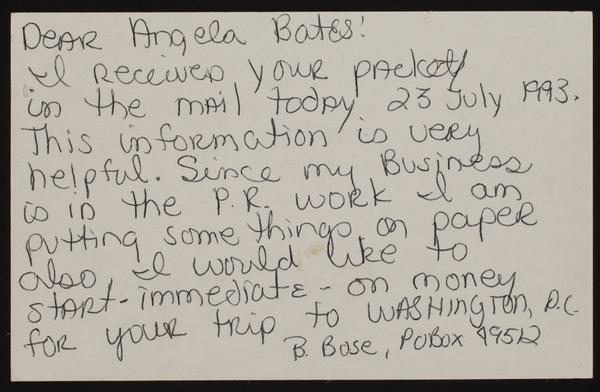 DEAR Angela Bates!
I received your packet
in the mail today 23 July 1993.
This information is very
helpful. Since my Business
is in the P.R. work I am
putting some things on paper
also, I would like to
START-immediate-on money
for your trip to WASHINGTON, D.C.
B. Bose, POBox 49512